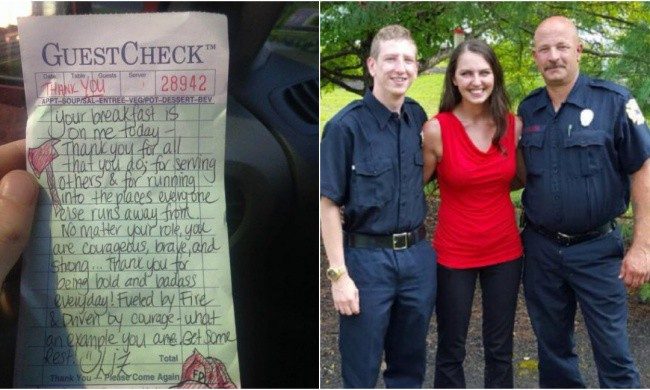 GUESTCHECK™
Date Table Guests Server
THANK YOU 28942
APPT-SOUP/SAL-ENTREE-VEG/POT-DESSERT-BEV
Your breakfast is
on me today -
Thank you for all
that you do; for serving
others & for running
into the places everyone
else runs away from.
No matter your role, you
are courageous, brave, and
strong... Thank you for
being bold and badass
everyday! Fueled by Fire
& Driven by courage - what
an example you are. Get some
rest! Liz
Total
Thank You - Please Come Again
FD